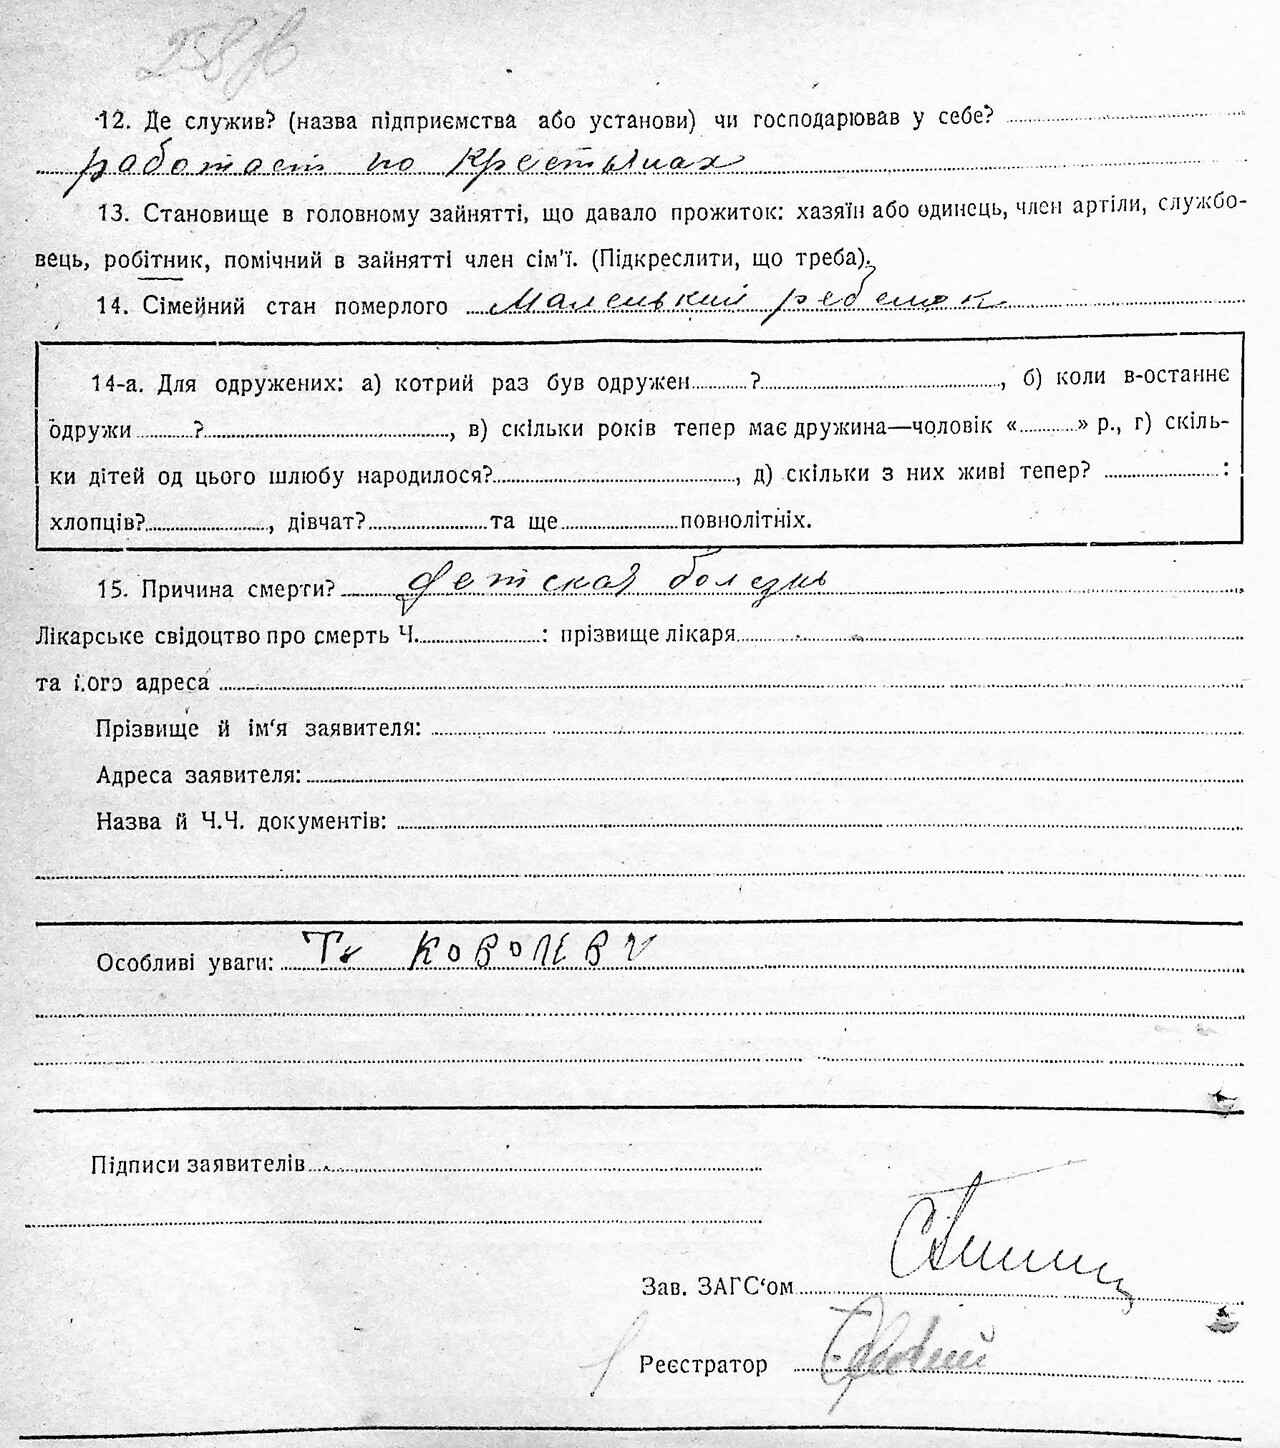 12. Де служив? (назва підприємства або установи) чи господарював у себе?
работает по крестьянах
13. Становище в головному зайнятті, що давало прожиток: хазяїн або одинець, член артіли, службо-
вець, робітник, помічний в зайнятті член сім'ї. (Підкреслити, що треба).
14. Сімейний стан померлого маленький ребенок
14-а. Для одружених: а) котрий раз був одружен ? , б) коли в-останнє
одружи ? , в) скільки років тепер має дружина—чоловік « » р., г) скіль-
ки дітей од цього шлюбу народилося? , д) скільки з них живі тепер? :
хлопців? , дівчат? та ще повнолітніх.
15. Причина смерти? детская болезнь
Лікарське свідоцтво про смерть Ч. : прізвище лікаря
та його адреса
Прізвище й ім'я заявителя:
Адреса заявителя:
Назва й Ч.Ч. документів:
Особливі уваги:
Підписи заявителів
Зав. ЗАГС'ом
Реєстратор